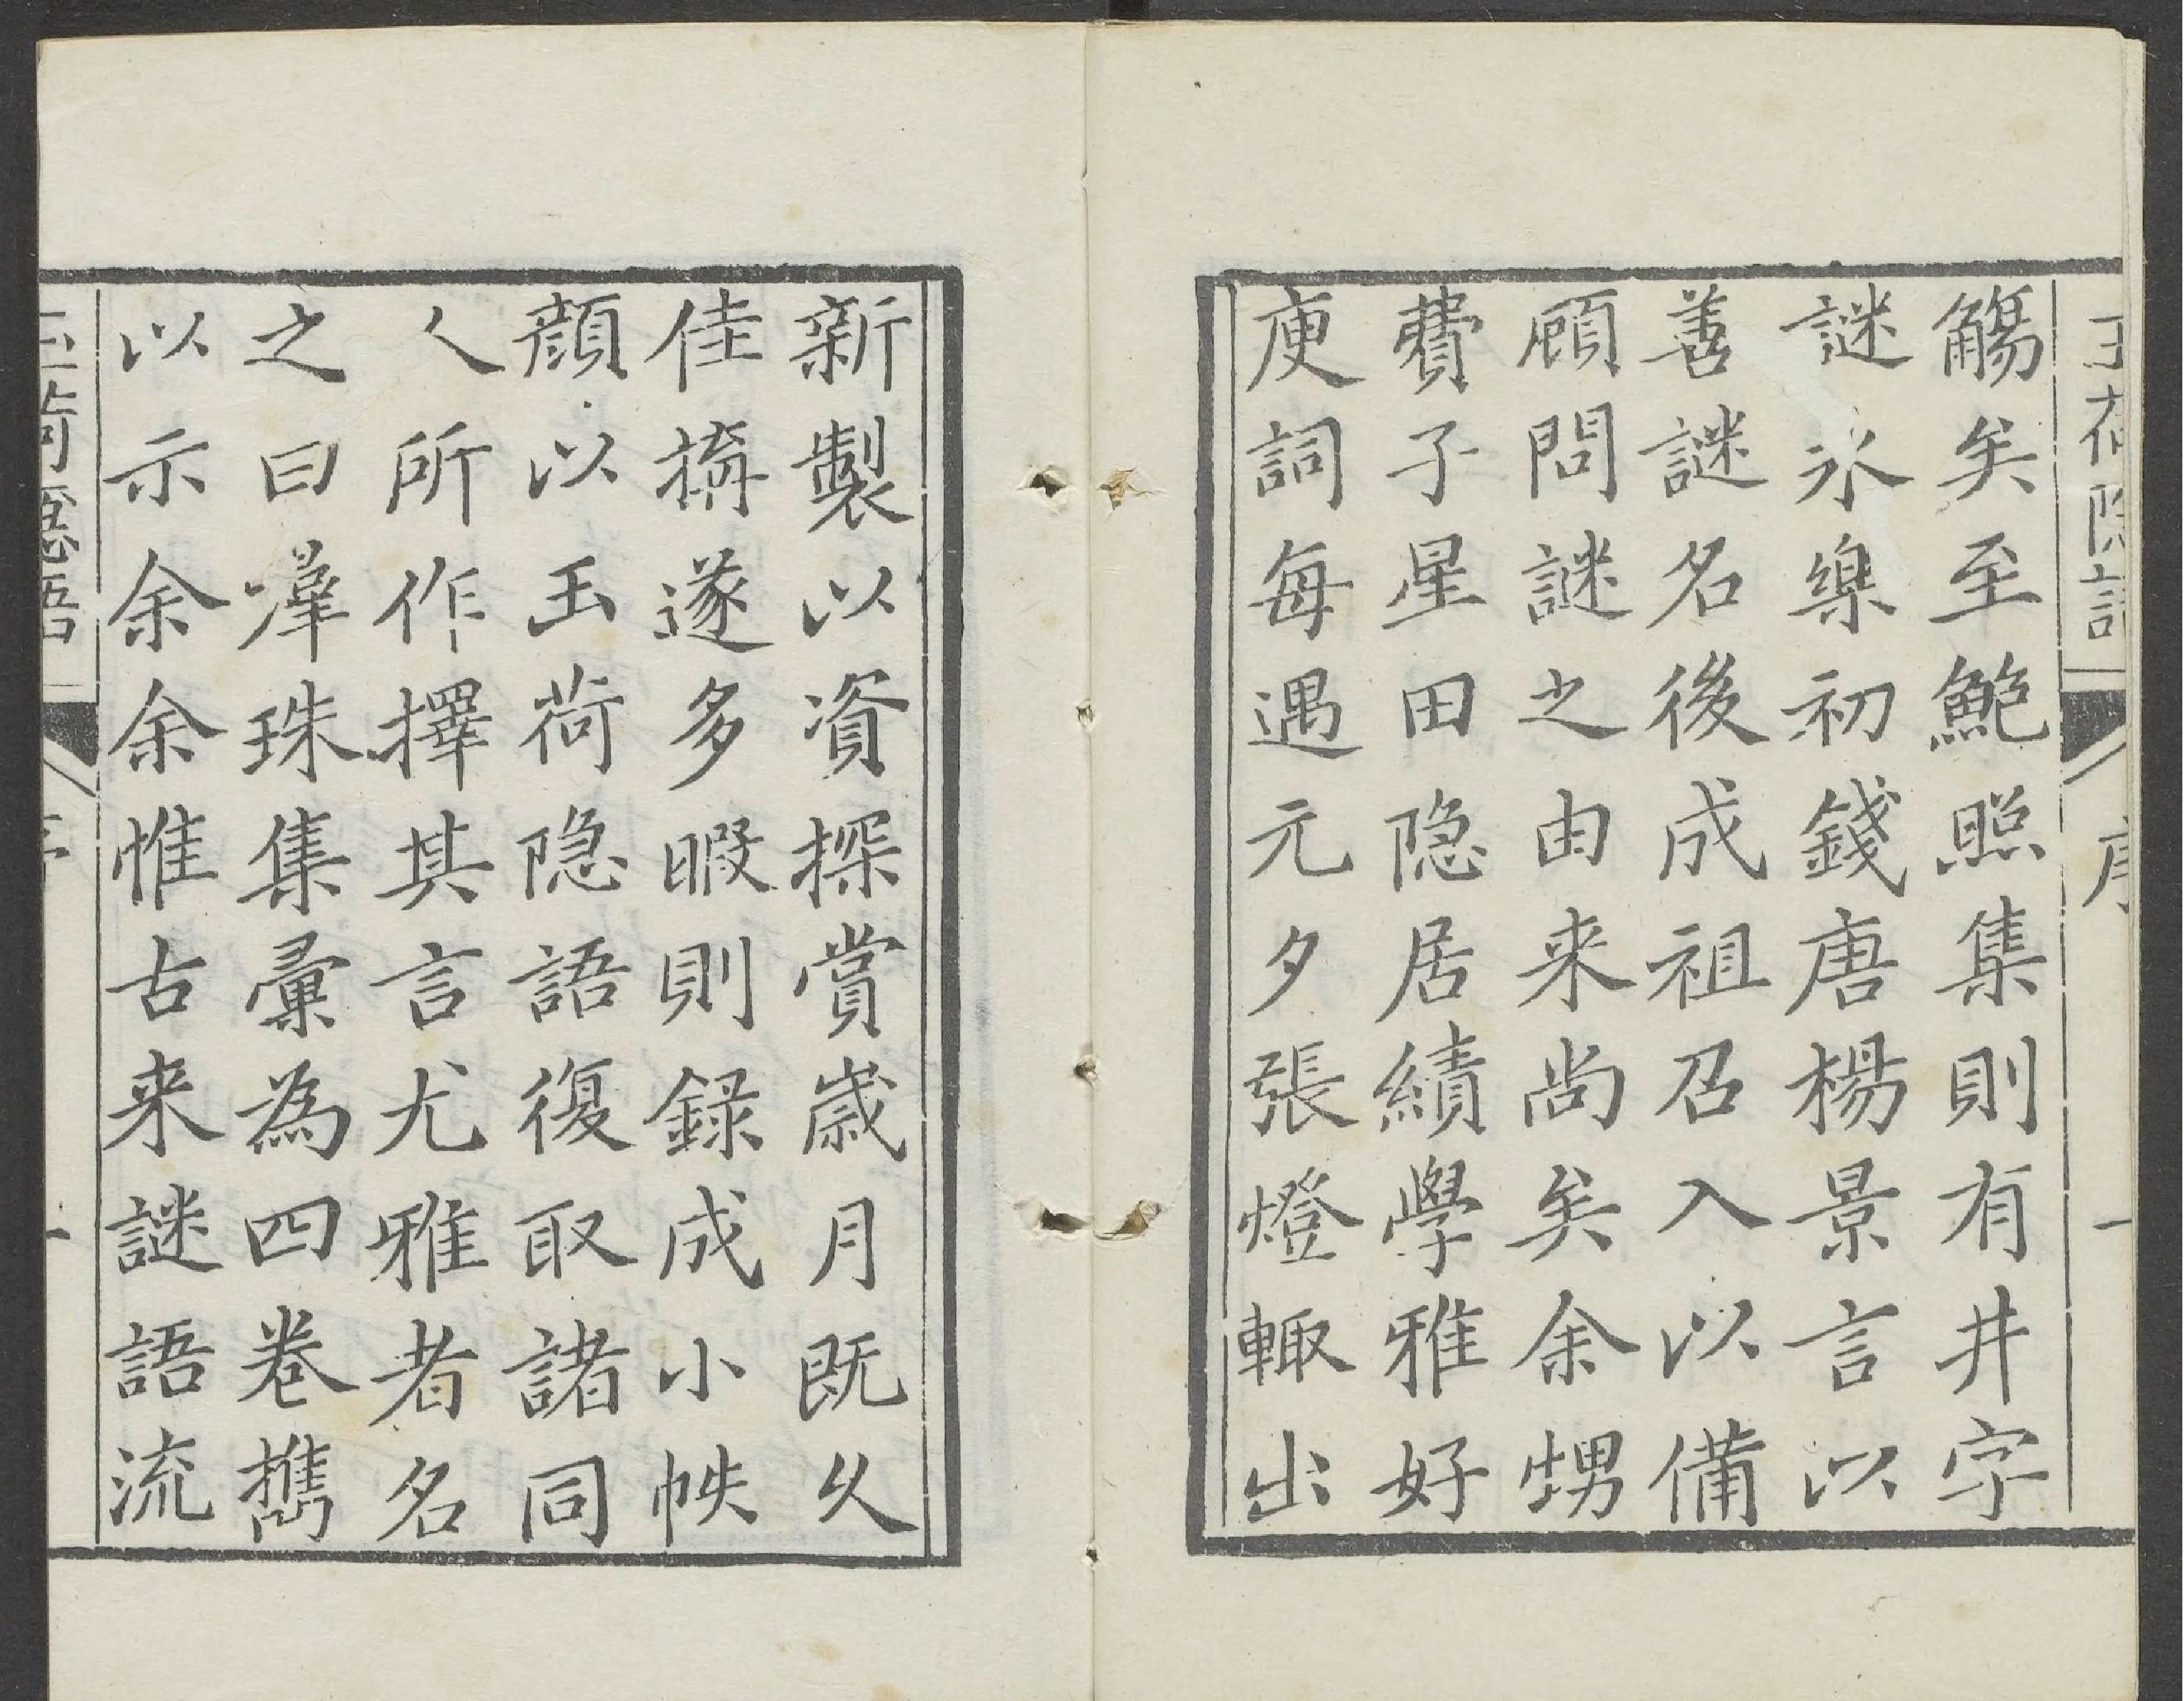 玉荷隱語
序
一
觴矣至鮑照集則有井字
謎永樂初錢唐楊景言以
善謎名後成祖召入以備
顧問謎之由来尚矣余甥
費子星田隐居績學雅好
庾詞每遇元夕張燈輙出
新製以資探賞歲月既久
佳搆遂多暇則録成小帙
顔以玉荷隐語復取諸同
人所作擇其言尤雅者名
之曰㶇珠集彙為四卷攜
以示余余惟古来謎語流
玉荷隱語
序